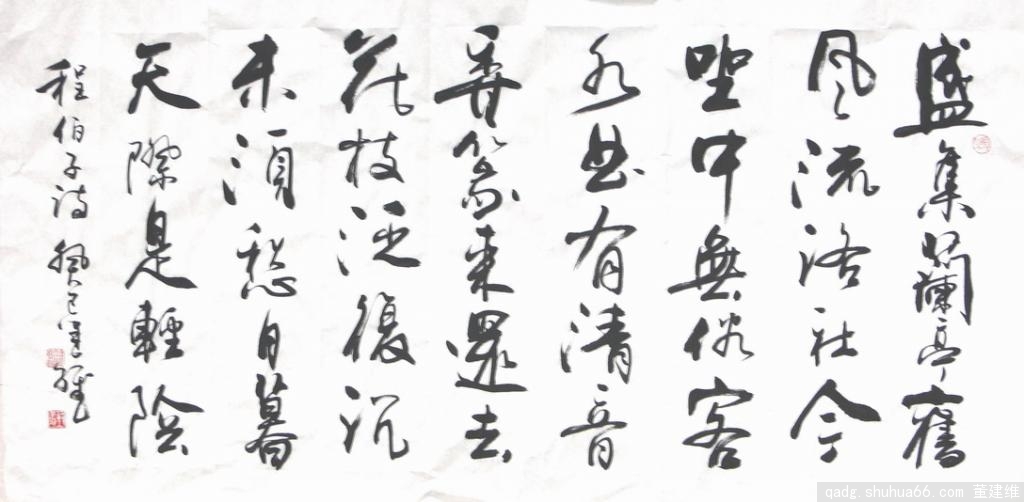 盛集蘭亭舊
風流洛社今
坐中無俗客
水曲有清音
香篆來還去
花枝泛復沉
未須愁日暮
天際是輕陰
程伯子詩 癸巳建維
qadg.shuhua66.com 董建维